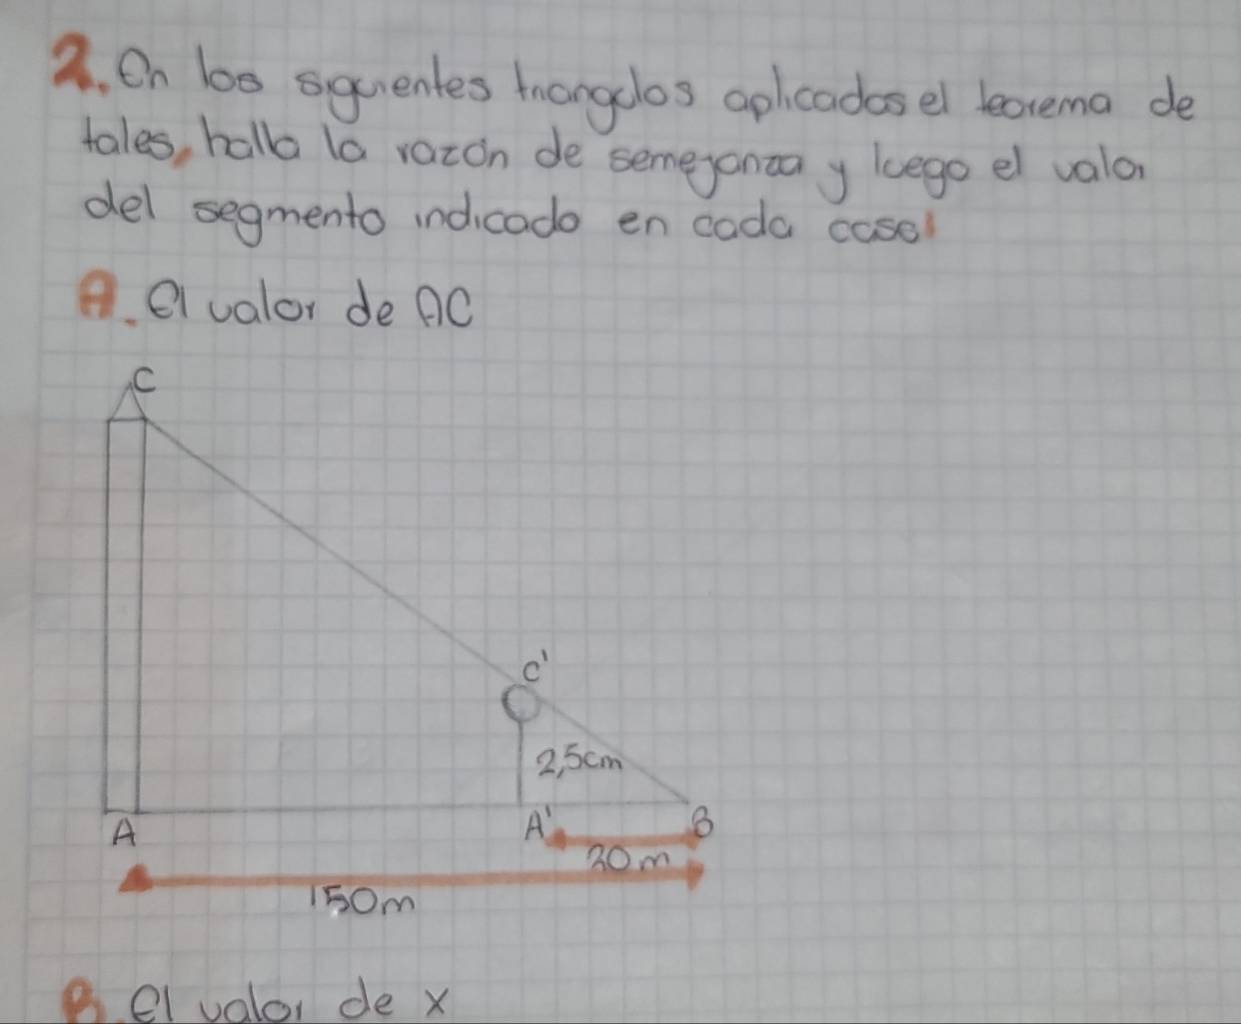 2. En los siguientes triangulos aplicados el teorema de
tales, halla la razón de semejanza y luego el valor
del segmento indicado en cada caso!
A. El valor de AC
C
C'
2,5cm
A
A'
B
20m
150m
B. El valor de x